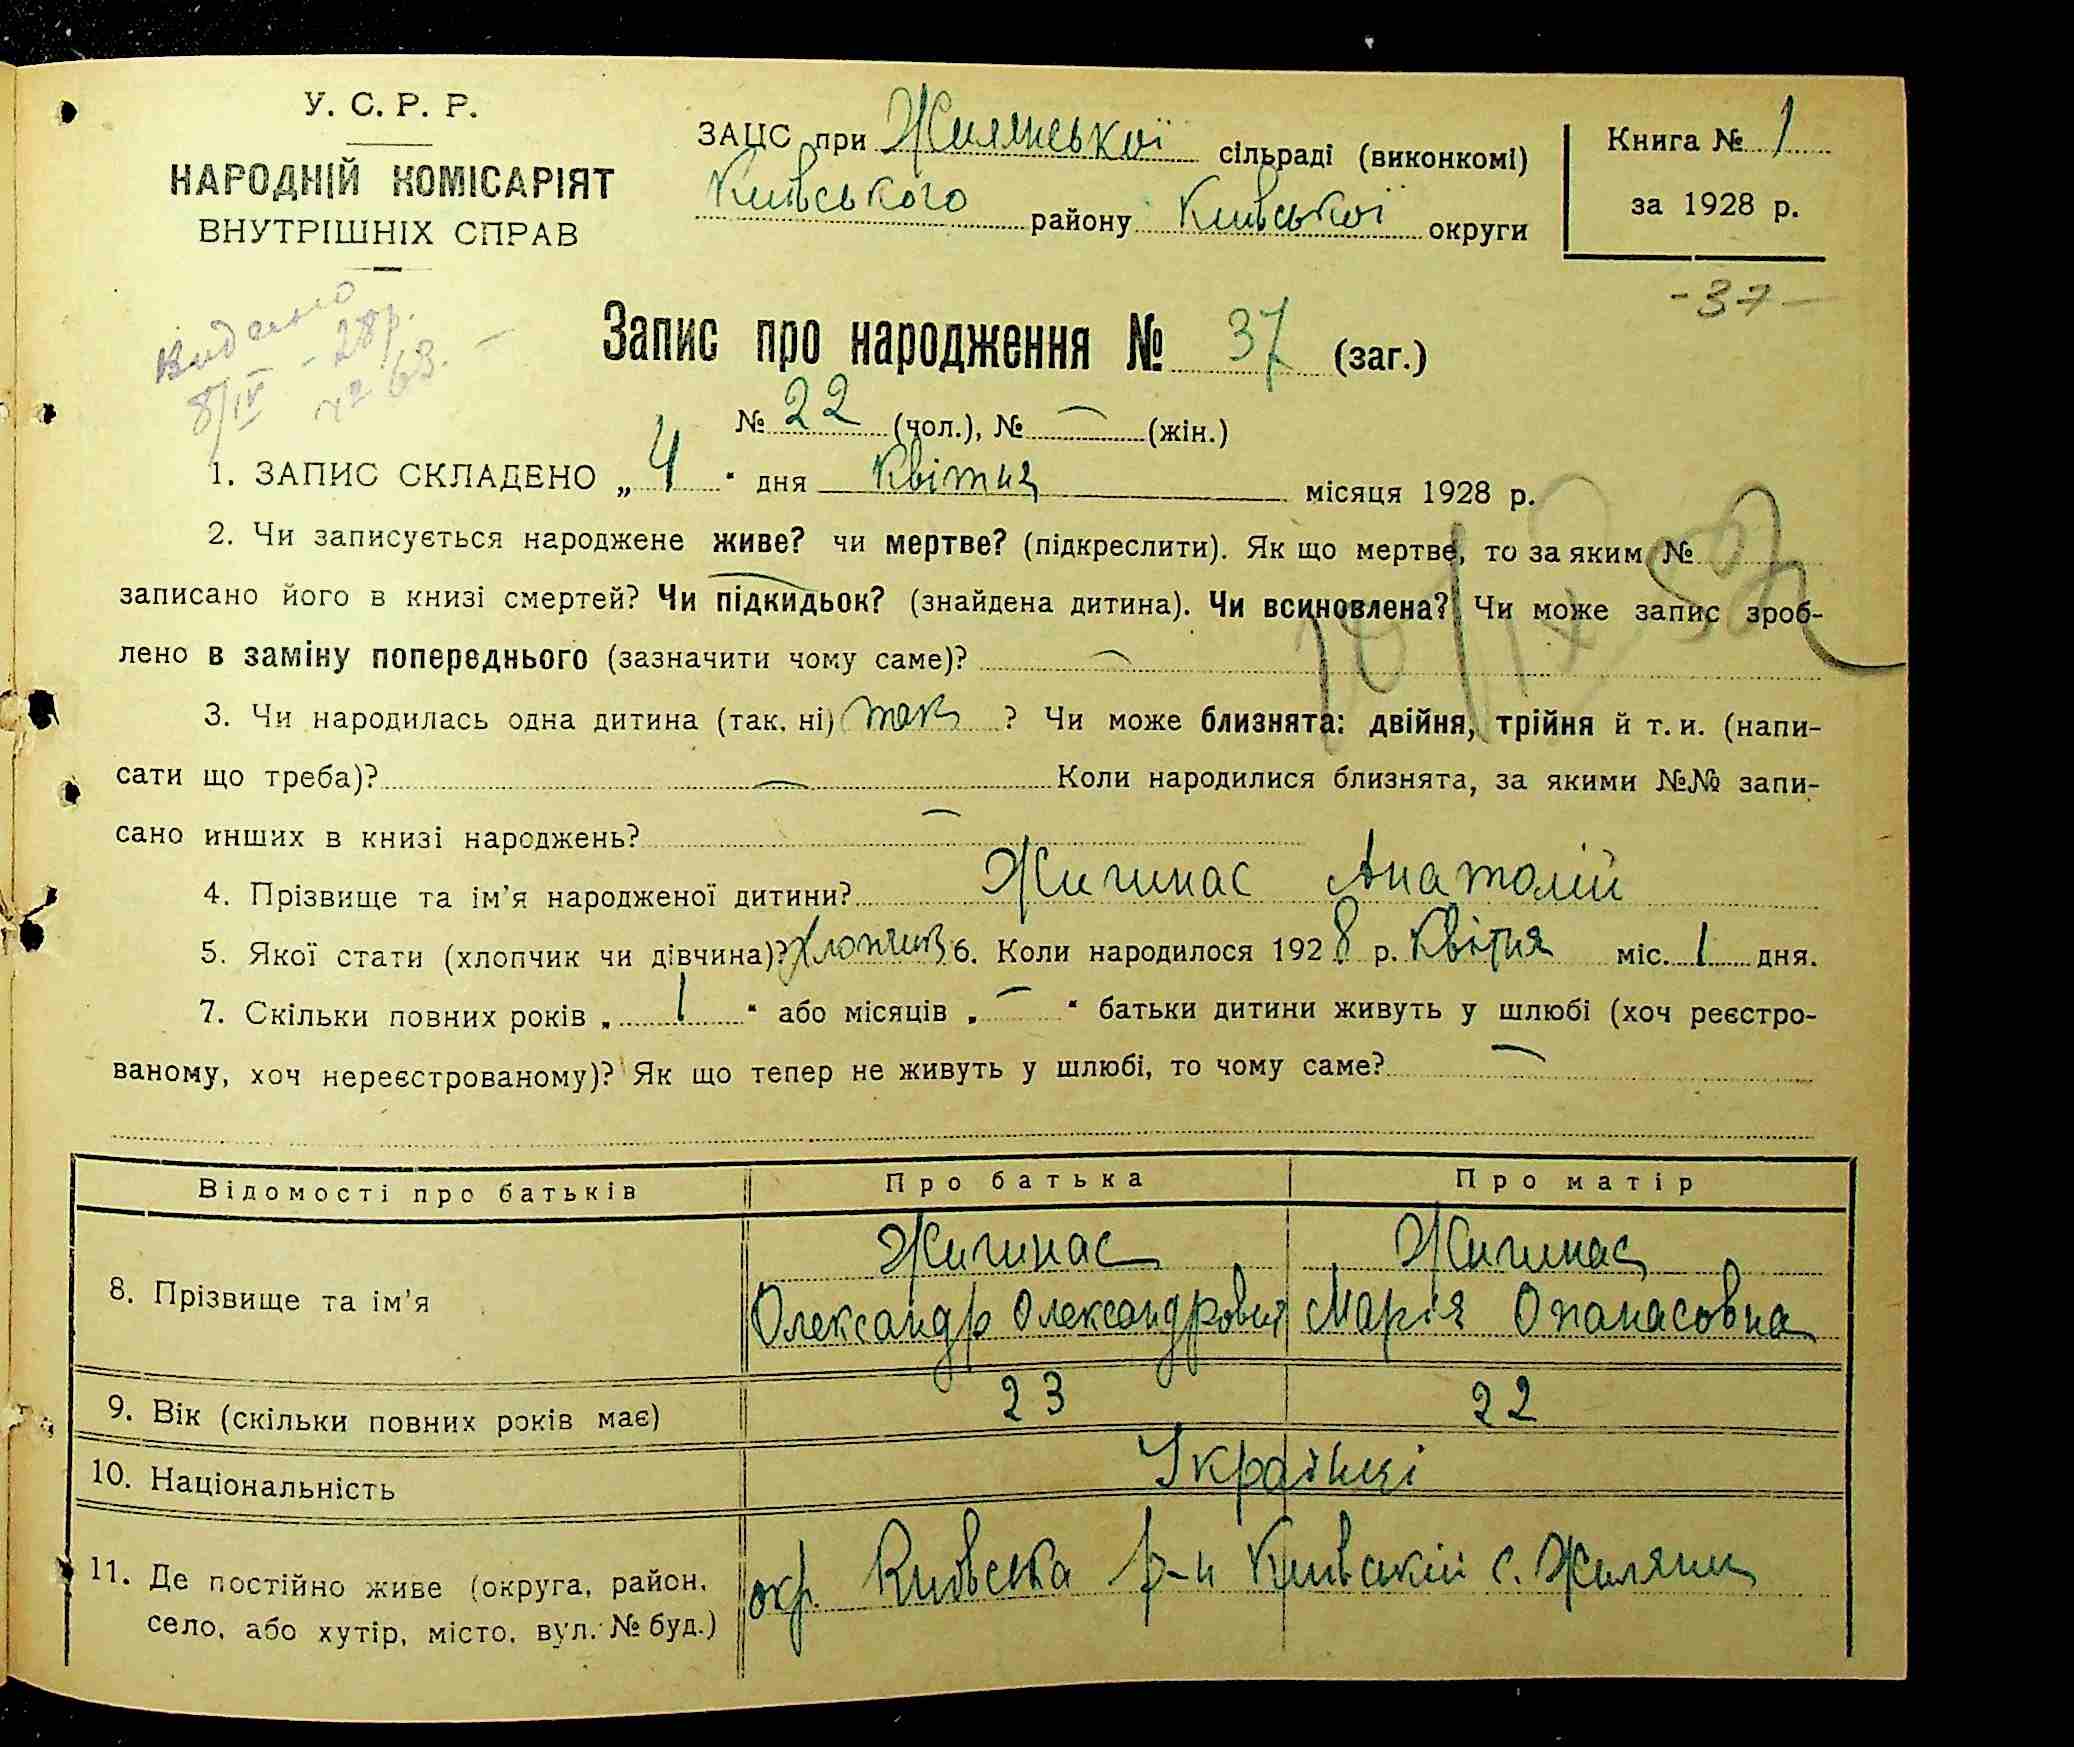 У. С. Р. Р.
НАРОДНІЙ КОМІСАРІЯТ
ВНУТРІШНІХ СПРАВ
ЗАЦС при Жилянської сільраді (виконкомі)
Київського району Київської округи
Книга № 1
за 1928 р.
- 37 -
Видано
8/IV - 28р.
№ 63. -
Запис про народження № 37 (заг.)
№ 22 (чол.), № — (жін.)
1. ЗАПИС СКЛАДЕНО „ 4 " дня Квітня місяця 1928 р.
2. Чи записується народжене живе? чи мертве? (підкреслити). Як що мертве, то за яким №
записано його в книзі смертей? Чи підкидьок? (знайдена дитина). Чи всиновлена? Чи може запис зроб-
лено в заміну попереднього (зазначити чому саме)? —
3. Чи народилась одна дитина (так, ні) так ? Чи може близнята: двійня, трійня й т. и. (напи-
сати що треба)? — Коли народилися близнята, за якими №№ запи-
сано инших в книзі народжень? —
4. Прізвище та ім'я народженої дитини? Жигинас Анатолій
5. Якої стати (хлопчик чи дівчина)? Хлопчик 6. Коли народилося 1928 р. Квітня міс. 1 дня.
7. Скільки повних років „ 1 " або місяців „ — " батьки дитини живуть у шлюбі (хоч реєстро-
ваному, хоч нереєстрованому)? Як що тепер не живуть у шлюбі, то чому саме? —
Відомості про батьків Про батька Про матір
8. Прізвище та ім'я Жигинас Жигинас
Олександр Олександрович Марія Опанасовна
9. Вік (скільки повних років має) 23 22
10. Національність Українці
11. Де постійно живе (округа, район, окр. Київська р-н Київській с. Жиляни
село, або хутір, місто, вул. № буд.)